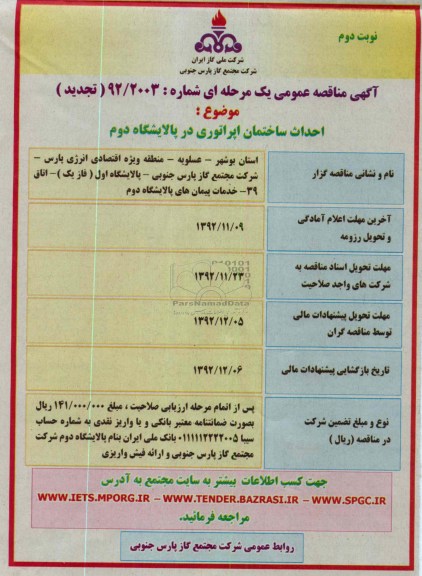 نوبت دوم
شرکت ملی گاز ایران
شرکت مجتمع گاز پارس جنوبی
آگهی مناقصه عمومی یک مرحله ای شماره : ۹۲/۲۰۰۳ ( تجدید )
موضوع :
احداث ساختمان اپراتوری در پالایشگاه دوم
نام و نشانی مناقصه گزار
استان بوشهر – عسلویه – منطقه ویژه اقتصادی انرژی پارس –
شرکت مجتمع گاز پارس جنوبی – پالایشگاه اول ( فاز یک ) – اتاق
۳۹– خدمات پیمان های پالایشگاه دوم
آخرین مهلت اعلام آمادگی
و تحویل رزومه
۱۳۹۲/۱۱/۰۹
مهلت تحویل اسناد مناقصه به
شرکت های واجد صلاحیت
۱۳۹۲/۱۱/۲۳
ParsNamadData
مهلت تحویل پیشنهادات مالی
توسط مناقصه گران
۱۳۹۲/۱۲/۰۵
تاریخ بازگشایی پیشنهادات مالی
۱۳۹۲/۱۲/۰۶
نوع و مبلغ تضمین شرکت
در مناقصه (ریال )
پس از اتمام مرحله ارزیابی صلاحیت ، مبلغ ۱۴۱/۰۰۰/۰۰۰ ریال
بصورت ضمانتنامه معتبر بانکی و یا واریز نقدی به شماره حساب
سیبا ۰۱۱۱۱۱۲۲۲۲۰۰۵ بانک ملی ایران بنام پالایشگاه دوم شرکت
مجتمع گاز پارس جنوبی و ارائه فیش واریزی
جهت کسب اطلاعات بیشتر به سایت مجتمع به آدرس
WWW.IETS.MPORG.IR – WWW.TENDER.BAZRASI.IR – WWW.SPGC.IR
مراجعه فرمائید.
روابط عمومی شرکت مجتمع گاز پارس جنوبی